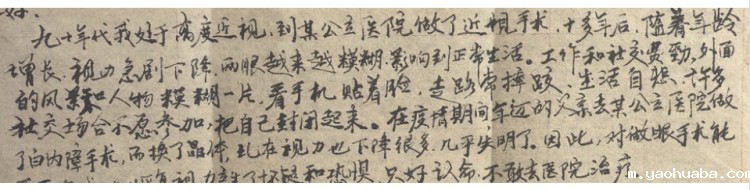 好.
九十年代我处于高度近视,到某公立医院做了近视手术,十多年后,随着年龄
增长,视力急剧下降,两眼越来越模糊.影响到正常生活。工作和社交费劲,外面
的风景和人物模糊一片,看手机贴着脸,走路常摔跤,生活自卑、许多
社交场合不愿参加,把自己封闭起来。在疫情期间,年迈的父亲去某公立医院做
了白内障手术,而换了晶体,现在视力也下降很多,几乎失明了。因此,对做眼手术能
恢复视力产生了怀疑和恐惧,只好认命,不敢去医院治疗
m.yaohuaba.com